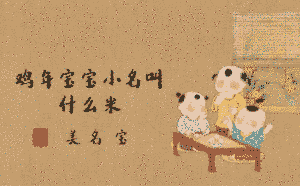 鸡年宝宝小名叫
什么米
美名宝